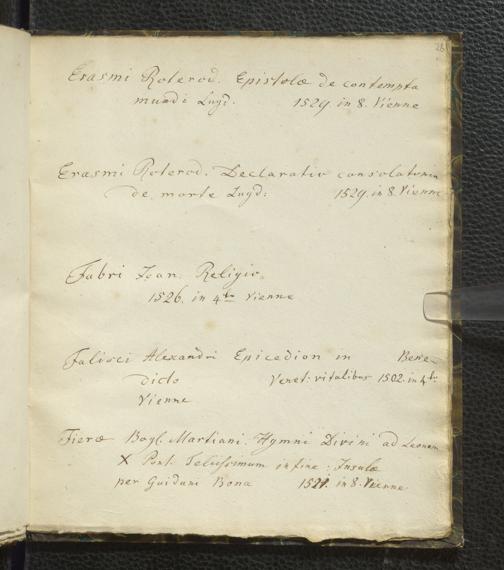 26
Erasmi Roterod. Epistolæ de contemptu
mundi Lugd. 1529 in 8. Vienne
Erasmi Roterod. Declaratio consolatoria
de morte Lugd: 1529. in 8. Vienne
Fabri Joan. Religio
1526. in 4to Vienne
Falisci Alexandri Epicedion in Bene-
dicto Venet: vitalibus 1502. in 4to:
Vienne
Fieræ Martiani. Hymni Divini ad Leonem
X Pont. in fine: Insulæ
per Guidum Bona in 8. Vienne